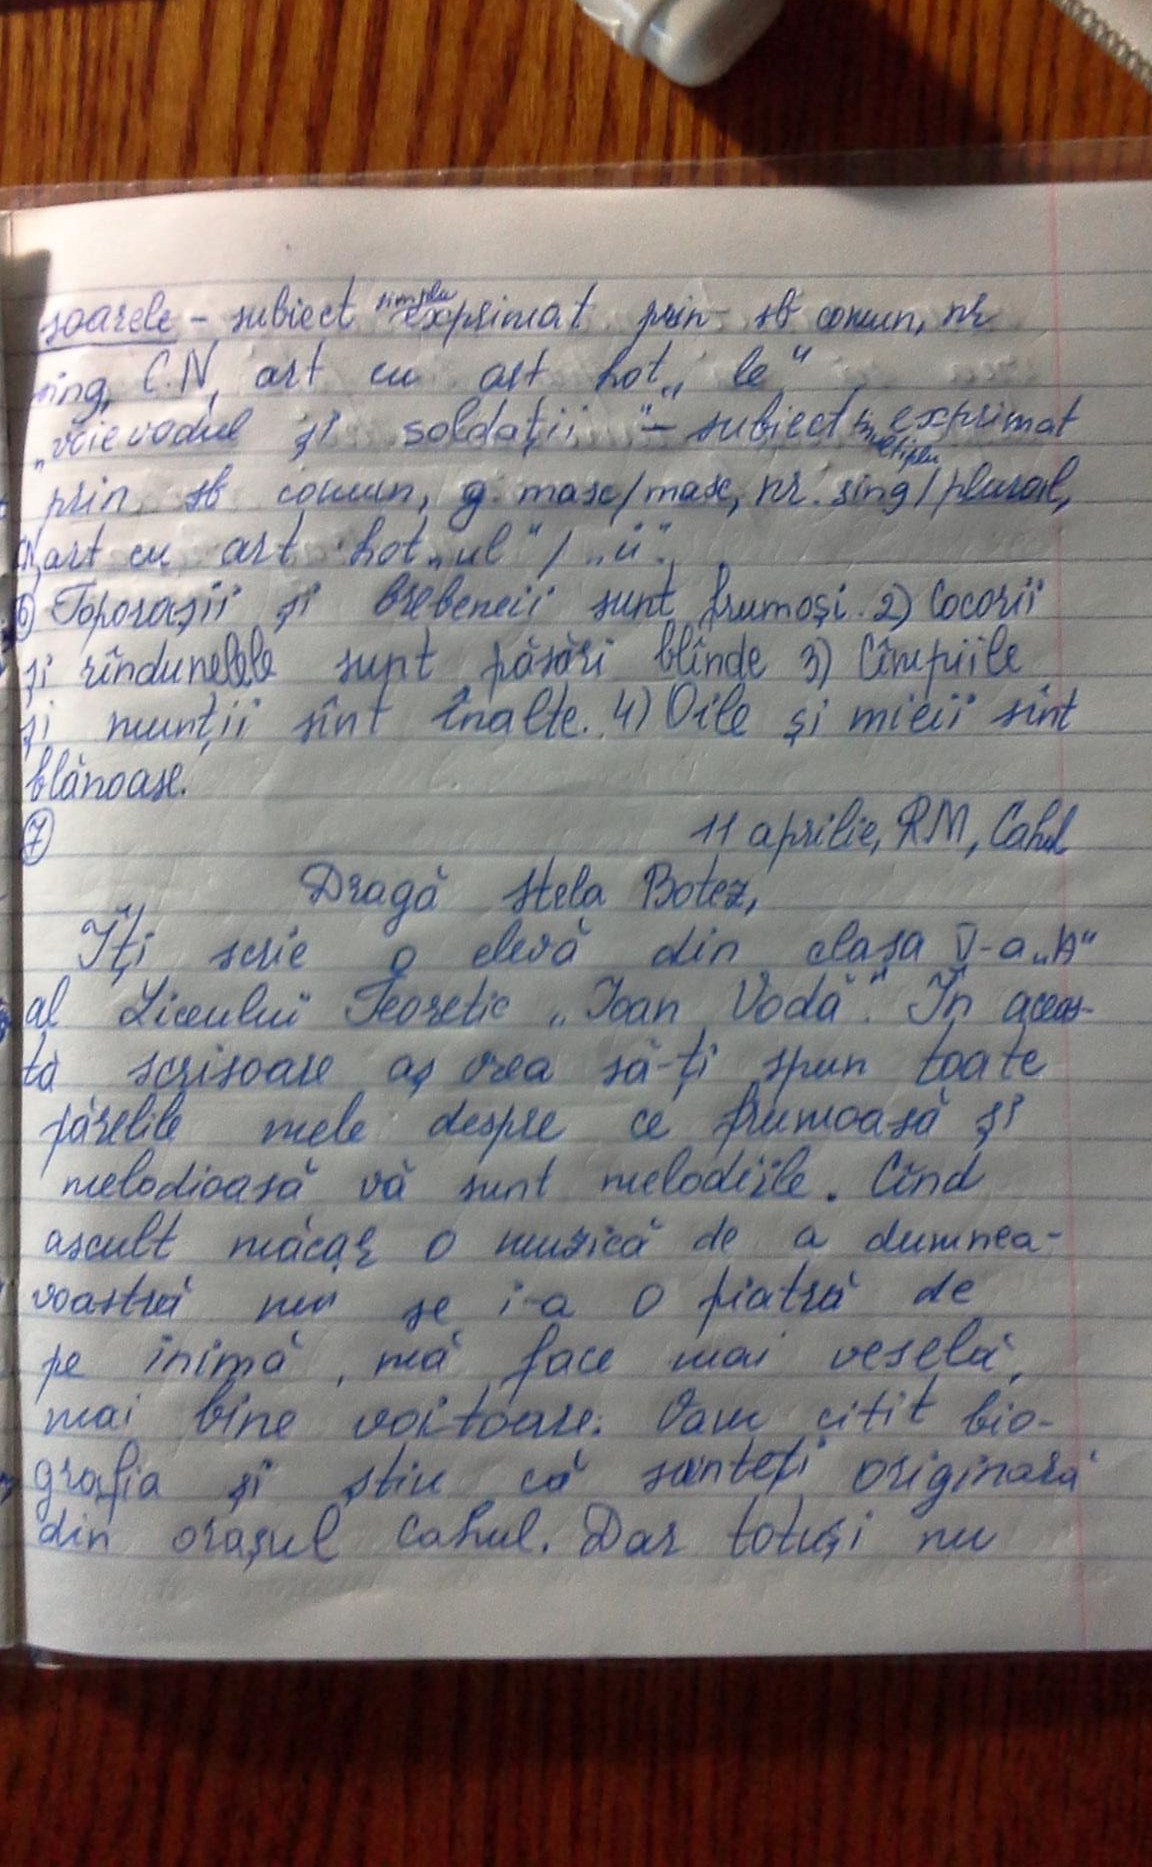 soarele - subiect simplu exprimat prin sb comun, nr
sing, C.N, art cu art hot „le"
„voievodul și soldații" - subiect multiplu exprimat
prin sb comun, g. masc/masc, nr. sing/plural,
CN, art cu art hot „ul"/„ii".
6) Toporașii și brebeneii sunt frumoși. 2) Cocorii
și rîndunelele sunt păsări blînde 3) Cîmpiile
și munții sînt înalte. 4) Oile și mieii sînt
blănoase.
7 11 aprilie, RM, Cahul
Dragă Stela Botez,
Îți scrie o elevă din clasa V-a „A"
al Liceului Teoretic „Ioan Vodă". În aceas-
tă scrisoare aș vrea să-ți spun toate
părelile mele despre ce frumoasă și
melodioasă vă sunt melodiile. Cînd
ascult măcar o muzică de a dumnea-
voastră mi se i-a o piatră de
pe inimă, mă face mai veselă,
mai bine voitoare. Vam citit bio-
grafia și știu că sunteți originară
din orașul Cahul. Dar totuși nu